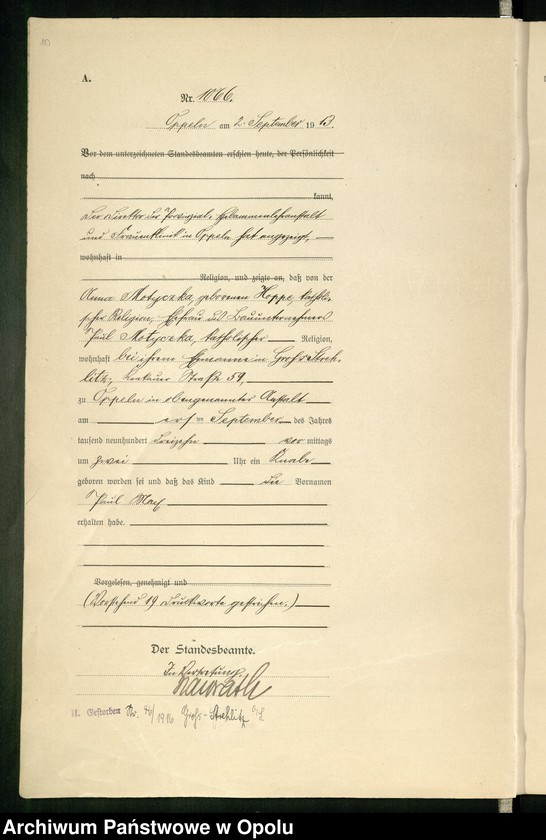 A.
Nr. 1066.
Oppeln am 2. September 1913.
Vor dem unterzeichneten Standesbeamten erschien heute, der Persönlichkeit
nach
kannt,
Der Direktor der Provinzial-Hebammenlehranstalt
und Frauenklinik in Oppeln hat angezeigt,
wohnhaft in
Religion, und zeigte an, daß von der
Anna Motyczka, geborenen Hoppe, katholi-
scher Religion, Ehefrau des Bauunternehmers
Paul Motyczka, katholischer Religion,
wohnhaft bei ihrem Ehemanne in Groß Streh-
litz, Straße 59,
zu Oppeln in obengenannter Anstalt
am ersten September des Jahres
tausend neunhundert dreizehn vormittags
um zwei Uhr ein Knabe
geboren worden sei und daß das Kind die Vornamen
Paul Max
erhalten habe.
Vorgelesen, genehmigt und
(Vorstehend 19 Druckworte gestrichen.)
Der Standesbeamte.
In Vertretung.
Gestorben Nr. /1916 Groß-Strehlitz O/S
Archiwum Państwowe w Opolu